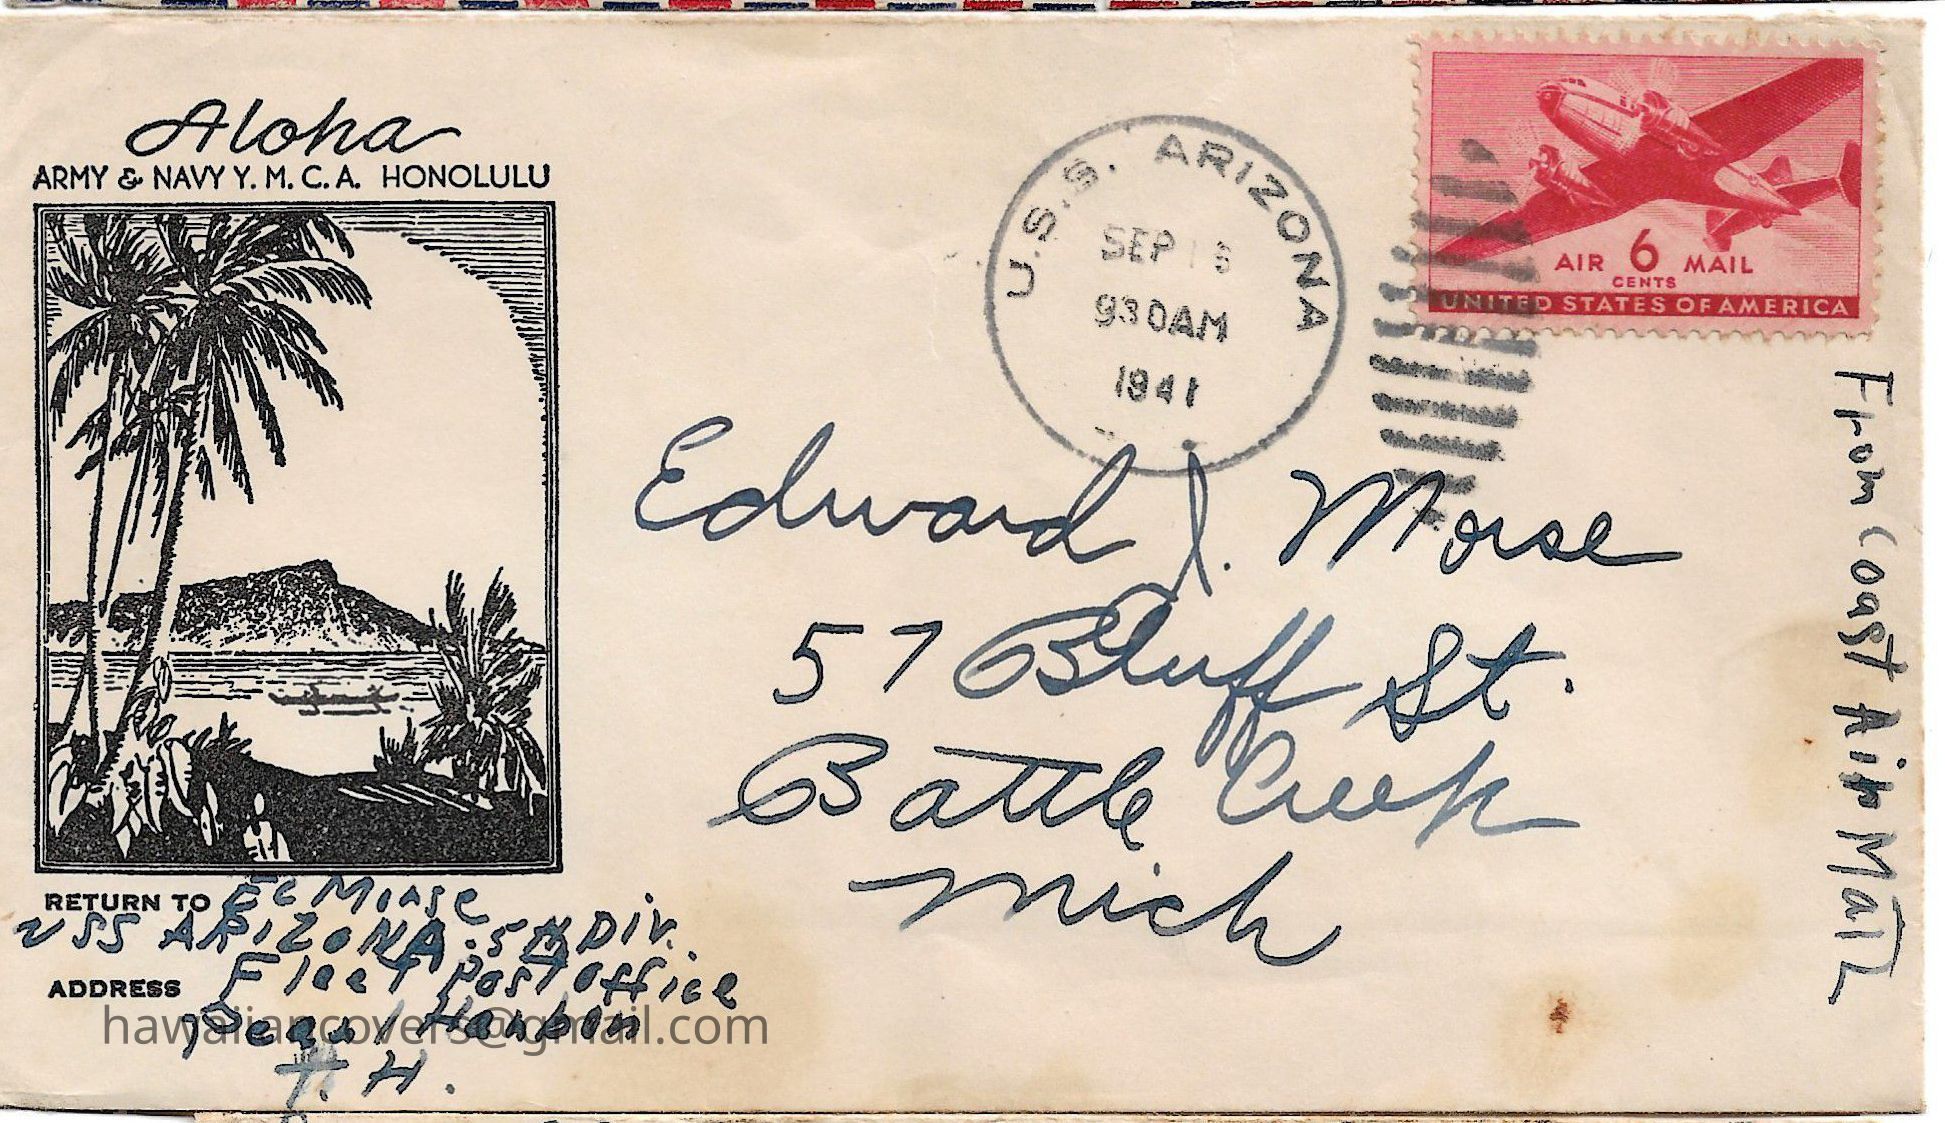 Aloha
ARMY & NAVY Y. M. C. A. HONOLULU
U.S.S. ARIZONA
SEP 16
930AM
1941
AIR 6 MAIL
CENTS
UNITED STATES OF AMERICA
From Coast Air Mail
Edward J. Morse
57 Bluff St.
Battle Creek
Mich
RETURN TO EC Morse
USS ARIZONA. 5th Div.
ADDRESS Fleet Post Office
Pearl Harbor
T. H.
hawaiiancovers@gmail.com